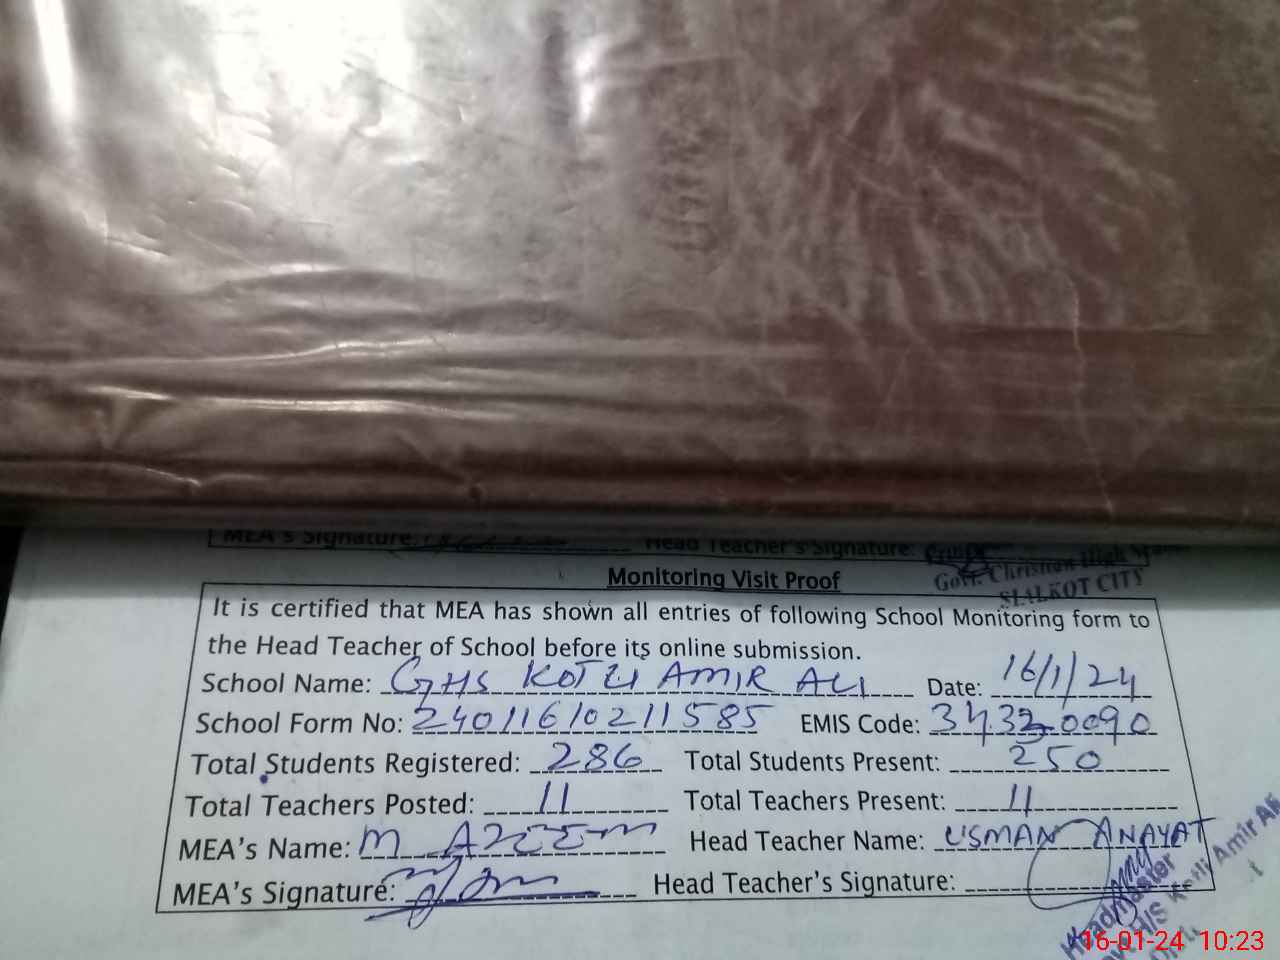 MEA's Signature: Head Teacher's Signature:
Govt. Christian High
SIALKOT CITY
Monitoring Visit Proof
It is certified that MEA has shown all entries of following School Monitoring form to
the Head Teacher of School before its online submission.
School Name: GHS KOTLI AMIR ALI Date: 16/1/24
School Form No: 24011610211585 EMIS Code: 34320090
Total Students Registered: 286 Total Students Present: 250
Total Teachers Posted: 11 Total Teachers Present: 11
MEA's Name: M AZEEM Head Teacher Name: USMAN ANAYAT
MEA's Signature: Head Teacher's Signature:
Headmaster
Kotli Amir Ali
16-01-24 10:23